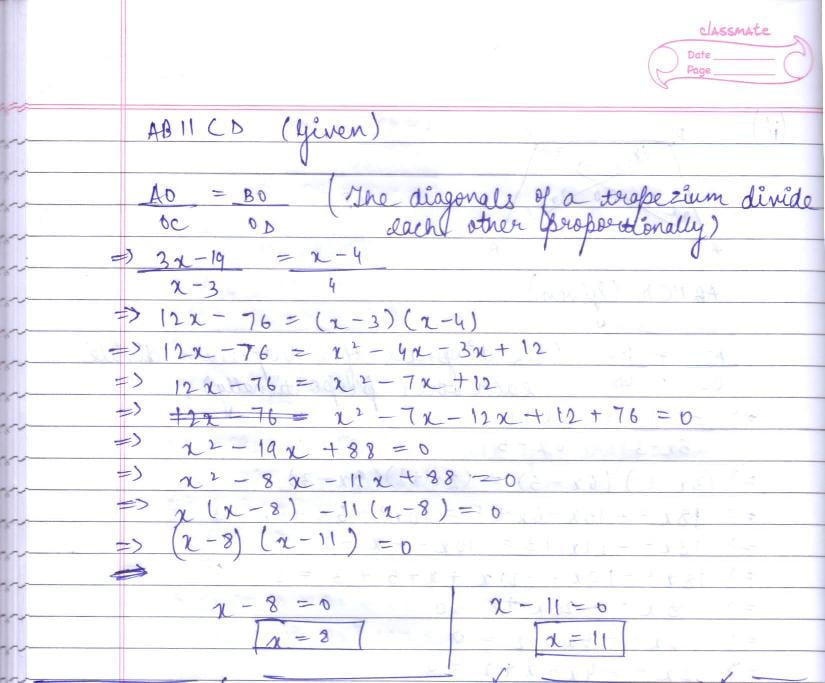 classmate
Date
Page
AB || CD (Given)
AO/OC = BO/OD (The diagonals of a trapezium divide
each other proportionally)
=> 3x-19/x-3 = x-4/4
=> 12x - 76 = (x-3)(x-4)
=> 12x - 76 = x² - 4x - 3x + 12
=> 12x - 76 = x² - 7x + 12
=> 12x - 76 = x² - 7x - 12x + 12 + 76 = 0
=> x² - 19x + 88 = 0
=> x² - 8x - 11x + 88 = 0
=> x(x-8) - 11(x-8) = 0
=> (x-8)(x-11) = 0
=>
x - 8 = 0 x - 11 = 0
x = 8 x = 11